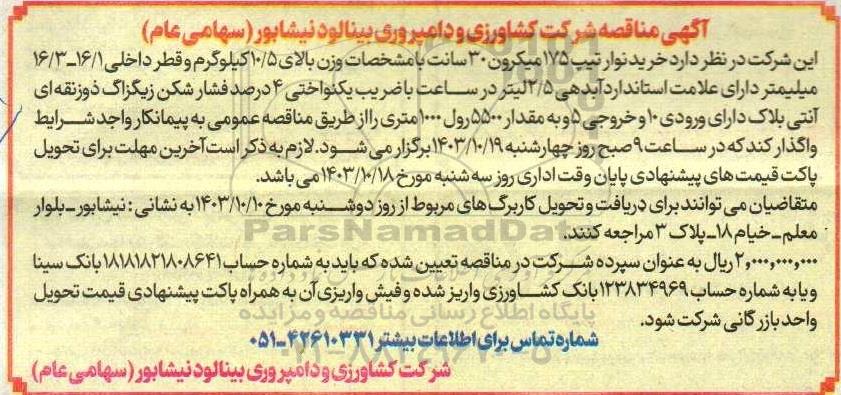 آگهی مناقصه شرکت کشاورزی و دامپروری بینالود نیشابور (سهامی عام)
این شرکت در نظر دارد خرید نوار تیپ ۱۷۵ میکرون ۳۰ سانت با مشخصات وزن بالای ۱۰/۵ کیلوگرم و قطر داخلی ۱۶/۱-۱۶/۳
میلیمتر دارای علامت استاندارد آبدهی ۲/۵ لیتر در ساعت با ضریب یکنواختی ۴ درصد فشار شکن زیگزاگ ذوزنقه ای
آنتی بلاک دارای ورودی ۱۰ و خروجی ۵ و به مقدار ۵۵۰۰ رول ۱۰۰۰ متری را از طریق مناقصه عمومی به پیمانکار واجد شرایط
واگذار کند که در ساعت ۹ صبح روز چهارشنبه ۱۴۰۳/۱۰/۱۹ برگزار می شود. لازم به ذکر است آخرین مهلت برای تحویل
پاکت قیمت های پیشنهادی پایان وقت اداری روز سه شنبه مورخ ۱۴۰۳/۱۰/۱۸ می باشد.
متقاضیان می توانند برای دریافت و تحویل کاربرگ های مربوط از روز دوشنبه مورخ ۱۴۰۳/۱۰/۱۰ به نشانی: نیشابور - بلوار
معلم - خیام ۱۸ - پلاک ۳ مراجعه کنند.
۲,۰۰۰,۰۰۰,۰۰۰ ریال به عنوان سپرده شرکت در مناقصه تعیین شده که باید به شماره حساب ۱۸۱۸۱۸۲۱۸۰۸۶۴۱ بانک سینا
و یا به شماره حساب ۱۲۳۸۳۴۹۶۹ بانک کشاورزی واریز شده و فیش واریزی آن به همراه پاکت پیشنهادی قیمت تحویل
واحد بازرگانی شرکت شود.
شماره تماس برای اطلاعات بیشتر ۴۲۶۱۰۳۳۱-۰۵۱
شرکت کشاورزی و دامپروری بینالود نیشابور (سهامی عام)
ParsNamadData
پایگاه اطلاع رسانی مناقصه و مزایده